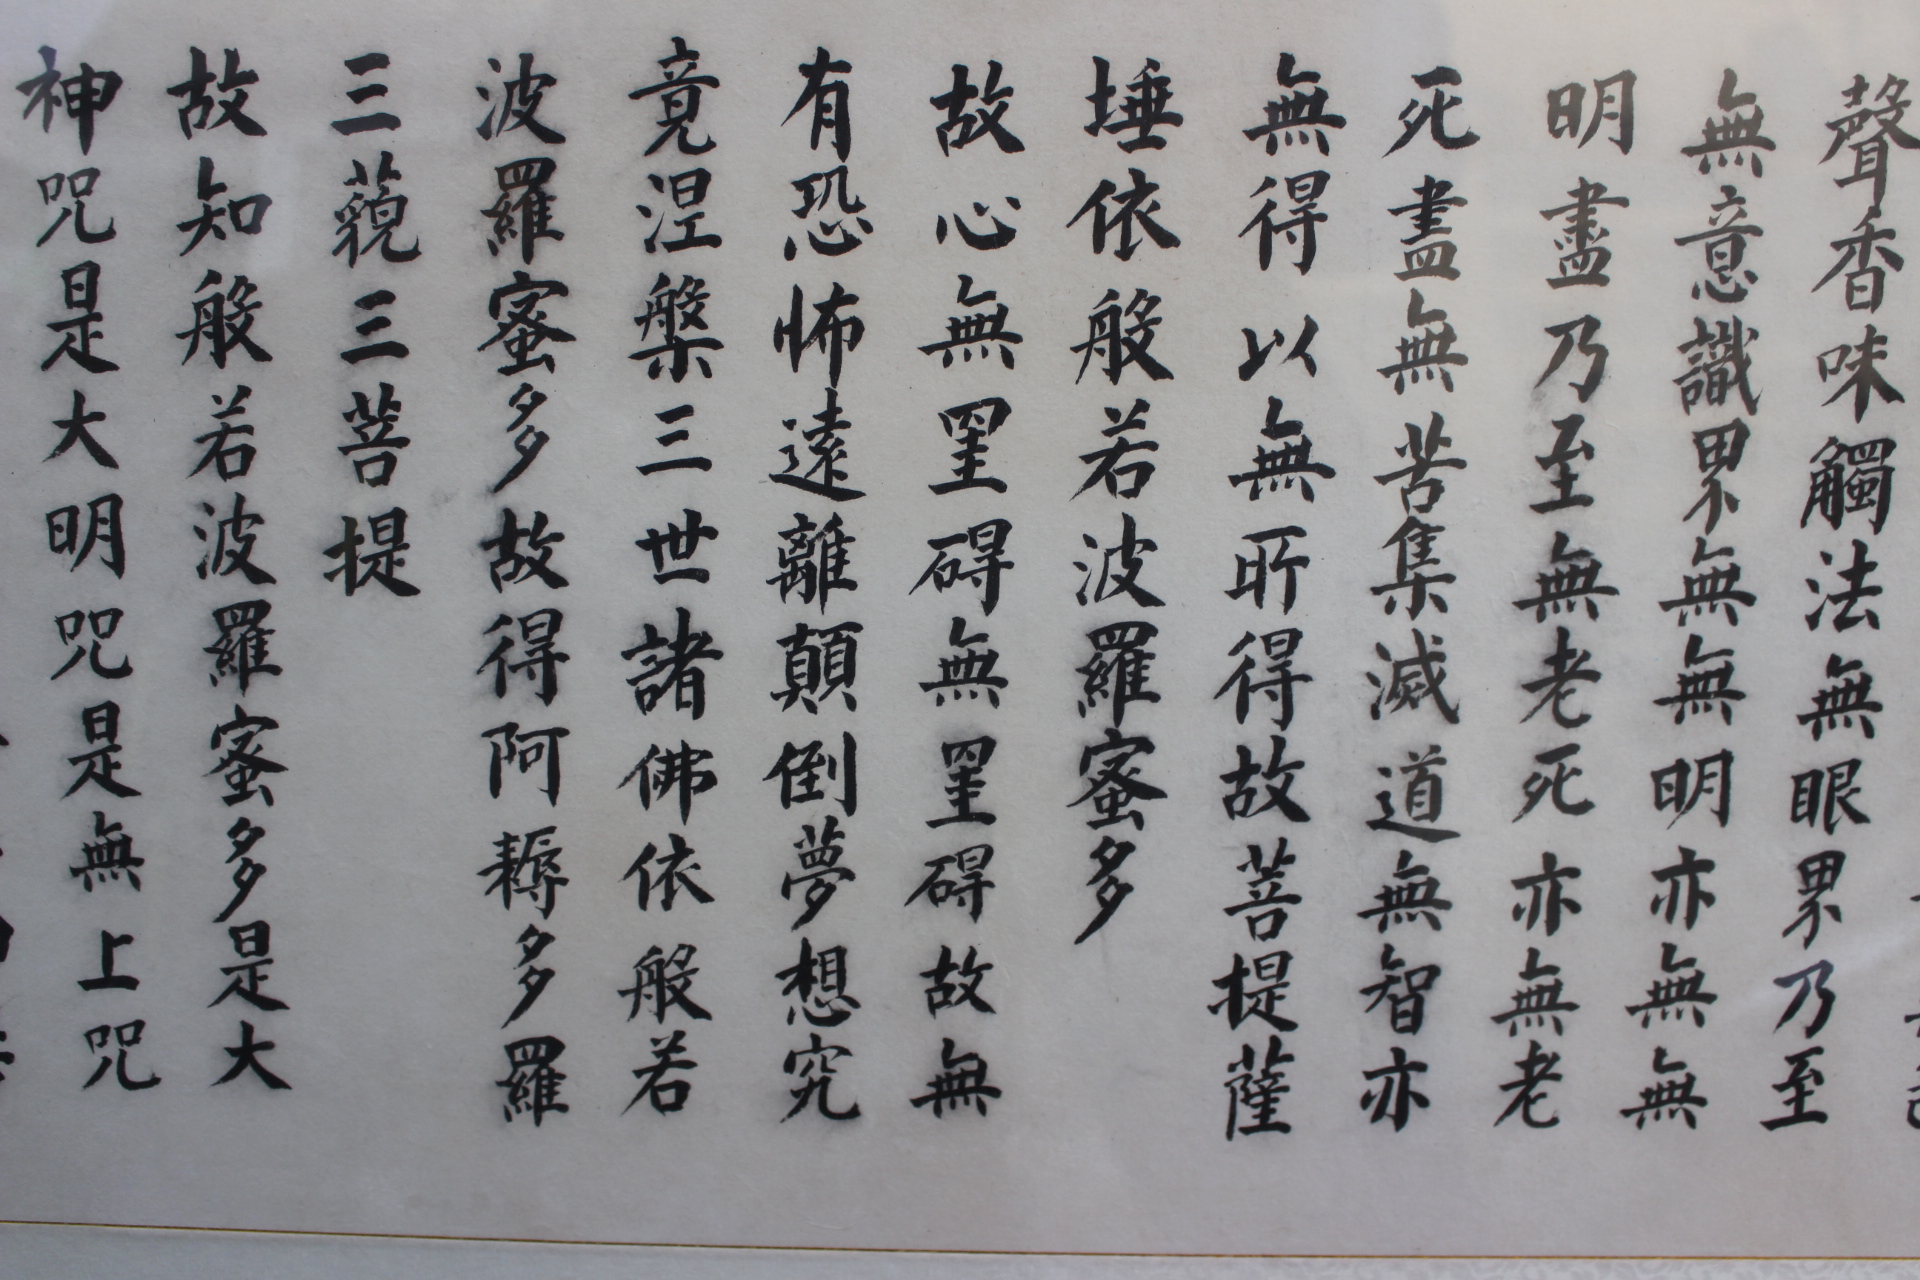 聲香味觸法無眼界乃至
無意識界無無明亦無無
明盡乃至無老死亦無老
死盡無苦集滅道無智亦
無得以無所得故菩提薩
埵依般若波羅蜜多
故心無罣碍無罣碍故無
有恐怖遠離顛倒夢想究
竟涅槃三世諸佛依般若
波羅蜜多故得阿耨多羅
三藐三菩提
故知般若波羅蜜多是大
神咒是大明咒是無上咒